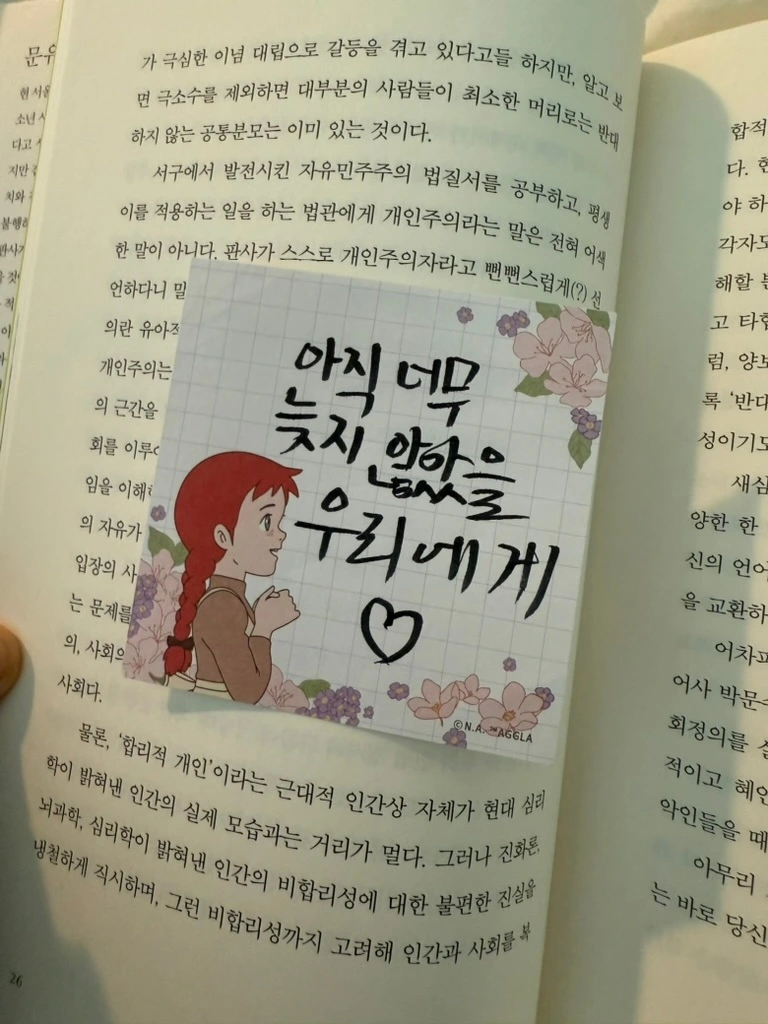 문유
현 서울
소년 
다고 
지만 
치와 
불행히
판사가
적
이
가 극심한 이념 대립으로 갈등을 겪고 있다고들 하지만, 알고 보
면 극소수를 제외하면 대부분의 사람들이 최소한 머리로는 반대
하지 않는 공통분모는 이미 있는 것이다.
서구에서 발전시킨 자유민주주의 법질서를 공부하고, 평생
이를 적용하는 일을 하는 법관에게 개인주의라는 말은 전혀 어색
한 말이 아니다. 판사가 스스로 개인주의자라고 뻔뻔스럽게(?) 선
언하다니 말
의란 유아적
개인주의는
의 근간을
회를 이루
임을 이해
의 자유가
입장의 사
는 문제를
의, 사회의
사회다.
아직 너무
늦지 않았을
우리에게
♡
©N.A. AGGLA
물론, ‘합리적 개인’이라는 근대적 인간상 자체가 현대 심리
학이 밝혀낸 인간의 실제 모습과는 거리가 멀다. 그러나 진화론,
뇌과학, 심리학이 밝혀낸 인간의 비합리성에 대한 불편한 진실을
냉철하게 직시하며, 그런 비합리성까지 고려해 인간과 사회를 복
26
합적
다. 현
야 하
각자도
해할 
고 타협
럼, 양보
록 ‘반대
성이기도
새심
양한 한
신의 언어
을 교환하
어차피
어사 박문수
회정의를 실
적이고 혜안
악인들을 때
아무리
는 바로 당신